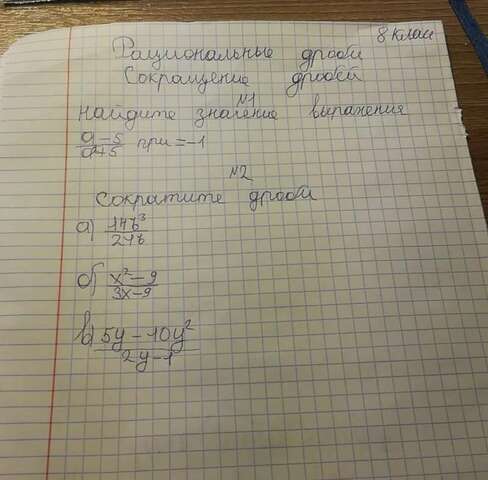 8 класс
Рациональные дроби
Сокращение дробей
№1
Найдите значение выражения
a-5/a+5 при =-1
№2
Сократите дроби
а) 14b³/21b
б) x²-9/3x-9
в) 5y-10y²/2y-1